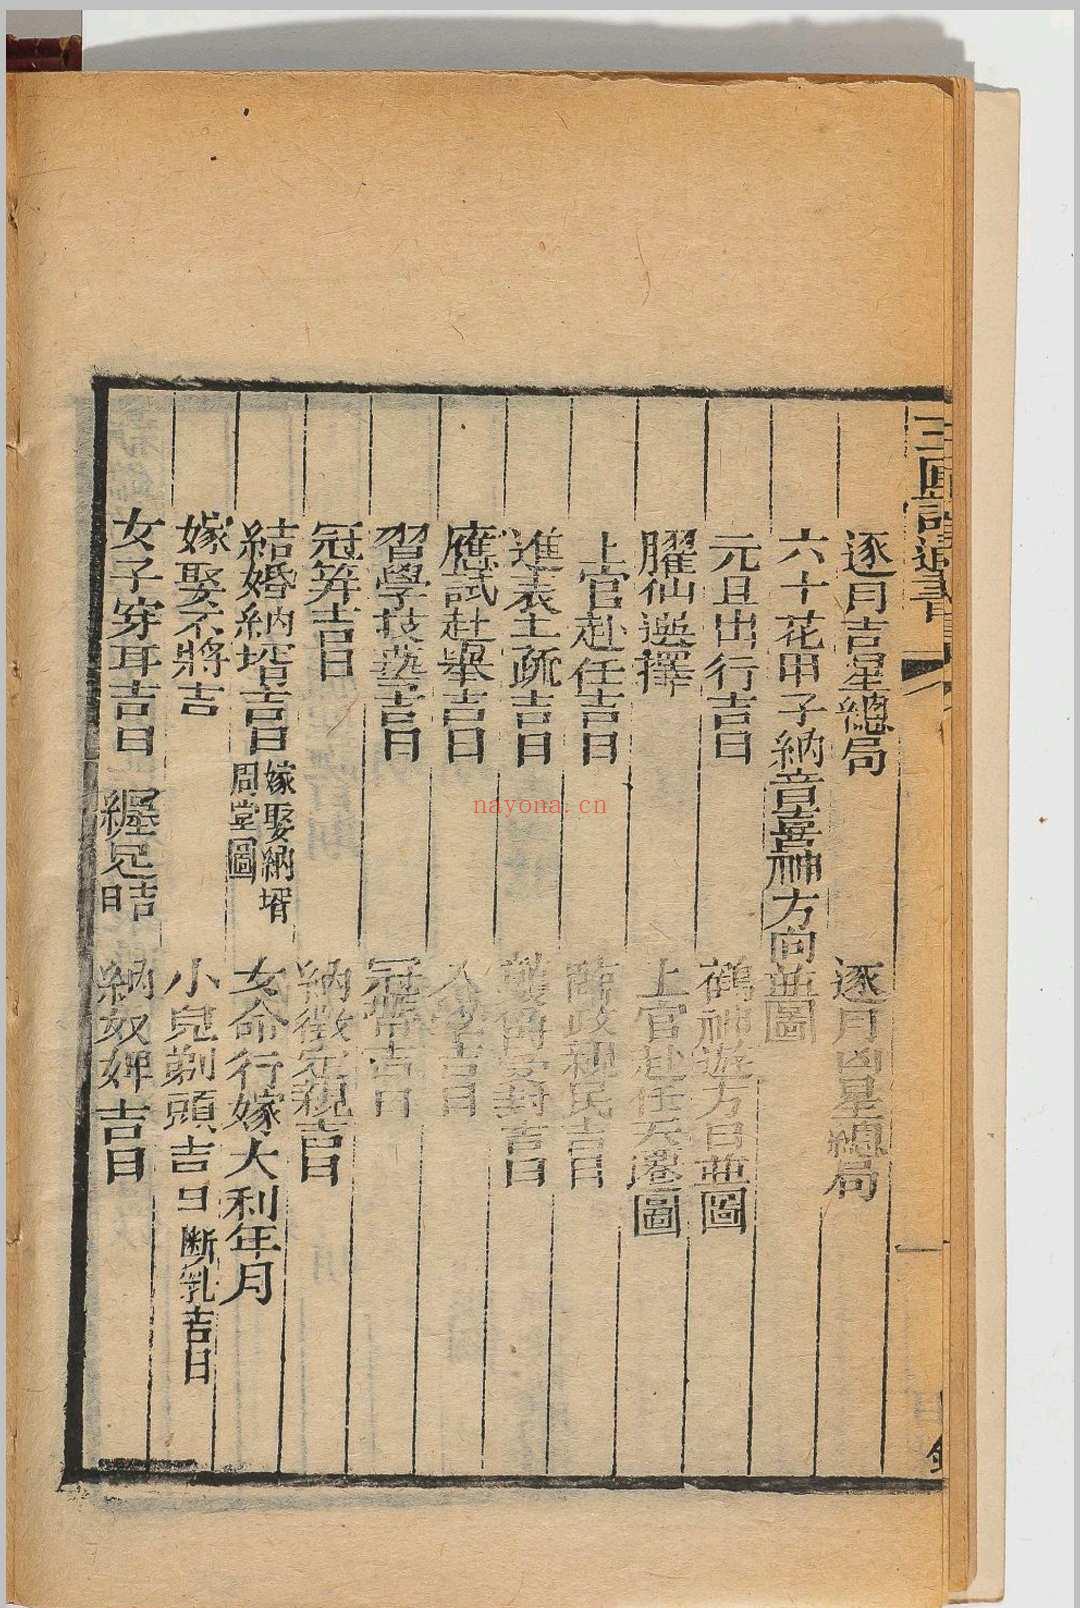 逐月吉星總局 逐月凶星總局
六十花甲子納音喜神方向並圖
元旦出行吉日 鶴神遊方日並圖
臞仙選擇 上官赴任天遷圖
上官赴任吉日 臨政親民吉日
進表上疏吉日 襲爵受封吉日
應試赴舉吉日 入學吉日
習學技藝吉日 冠帶吉日
冠笄吉日 納徵定親吉日
結婚納壻吉日 嫁娶納壻
周堂圖 女命行嫁大利年月
嫁娶不將吉 小兒剃頭吉日 断乳吉日
女子穿耳吉日 纏足吉時 納奴婢吉日
nayona.cn